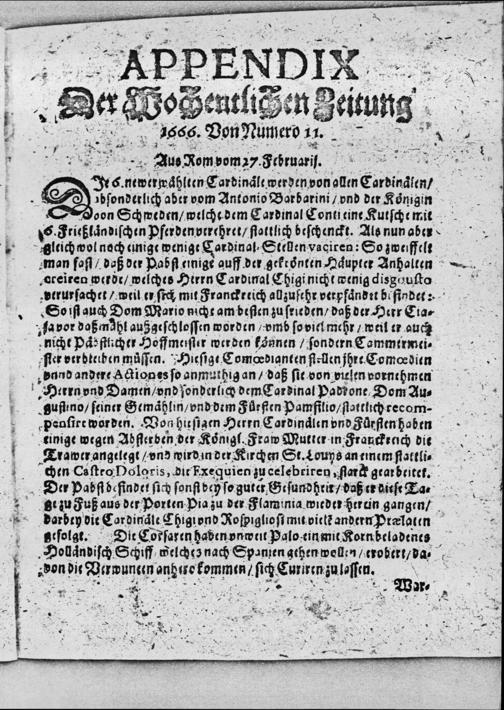 APPENDIX
Der Wochentlichen Zeitung
1666. Von Numero 11.
Aus Rom vom 27. Februarij.
Die 6. newerwählten Cardinäle werden von allen Cardinälen/
absonderlich aber vom Antonio Barbarini/ vnd der Königin
von Schweden/ welche dem Cardinal Conti eine Kutsche mit
6. Frießländischen Pferden verehret/ stattlich beschenckt. Als nun aber
gleichwol noch einige wenige Cardinal-Stellen vaciren: So zweiffelt
man fast/ daß der Pabst einige auff der gekrönten Häupter Anhalten
creiren werde/ welches Herrn Cardinal Chigi nicht wenig disgousto
verursachet/ weil er sich mit Franckreich allzusehr verpfändet befindet:
So ist auch Dom Mario nicht am besten zu frieden/ daß der Herr
vor daßmahl außgeschlossen worden/ vmb so viel mehr/ weil er auch
nicht Päbstlicher Hoffmeister werden können/ sondern Cammermei-
ster verbleiben müssen. Hiesige Comœdianten stellen jhre Comœdien
vnnd andere Actiones so anmuthig an/ daß sie von vielen vornehmen
Herrn vnd Damen/ vnd sonderlich dem Cardinal Padrone. Dom Au-
gustino/ seiner Gemählin/ vnd dem Fürsten Pamfilio/ stattlich recom-
pensirt worden. Von hiesigen Herrn Cardinälen vnd Fürsten haben
einige wegen Absterben der Königl. Fraw Mutter in Franckreich die
Trawer angelegt/ vnd wird in der Kirchen St. Louys an einem stattli-
chen Castro Doloris, die Exequien zu celebriren, starck gearbeitet.
Der Pabst befindet sich sonst bey so guter Gesundheit/ daß er diese Ta-
ge zu Fuß aus der Porten Pia zu der Flaminia wieder herein gangen/
darbey die Cardinäle Chigi vnd Rospigliosi mit vielē andern Prælaten
gefolgt. Die Corsaren haben vnweit Palo ein mit Korn beladenes
Holländisch Schiff/ welches nach Spanien gehen wollen/ erobert/ da-
von die Verwunten anhero kommen/ sich Curiren zu lassen.
War-